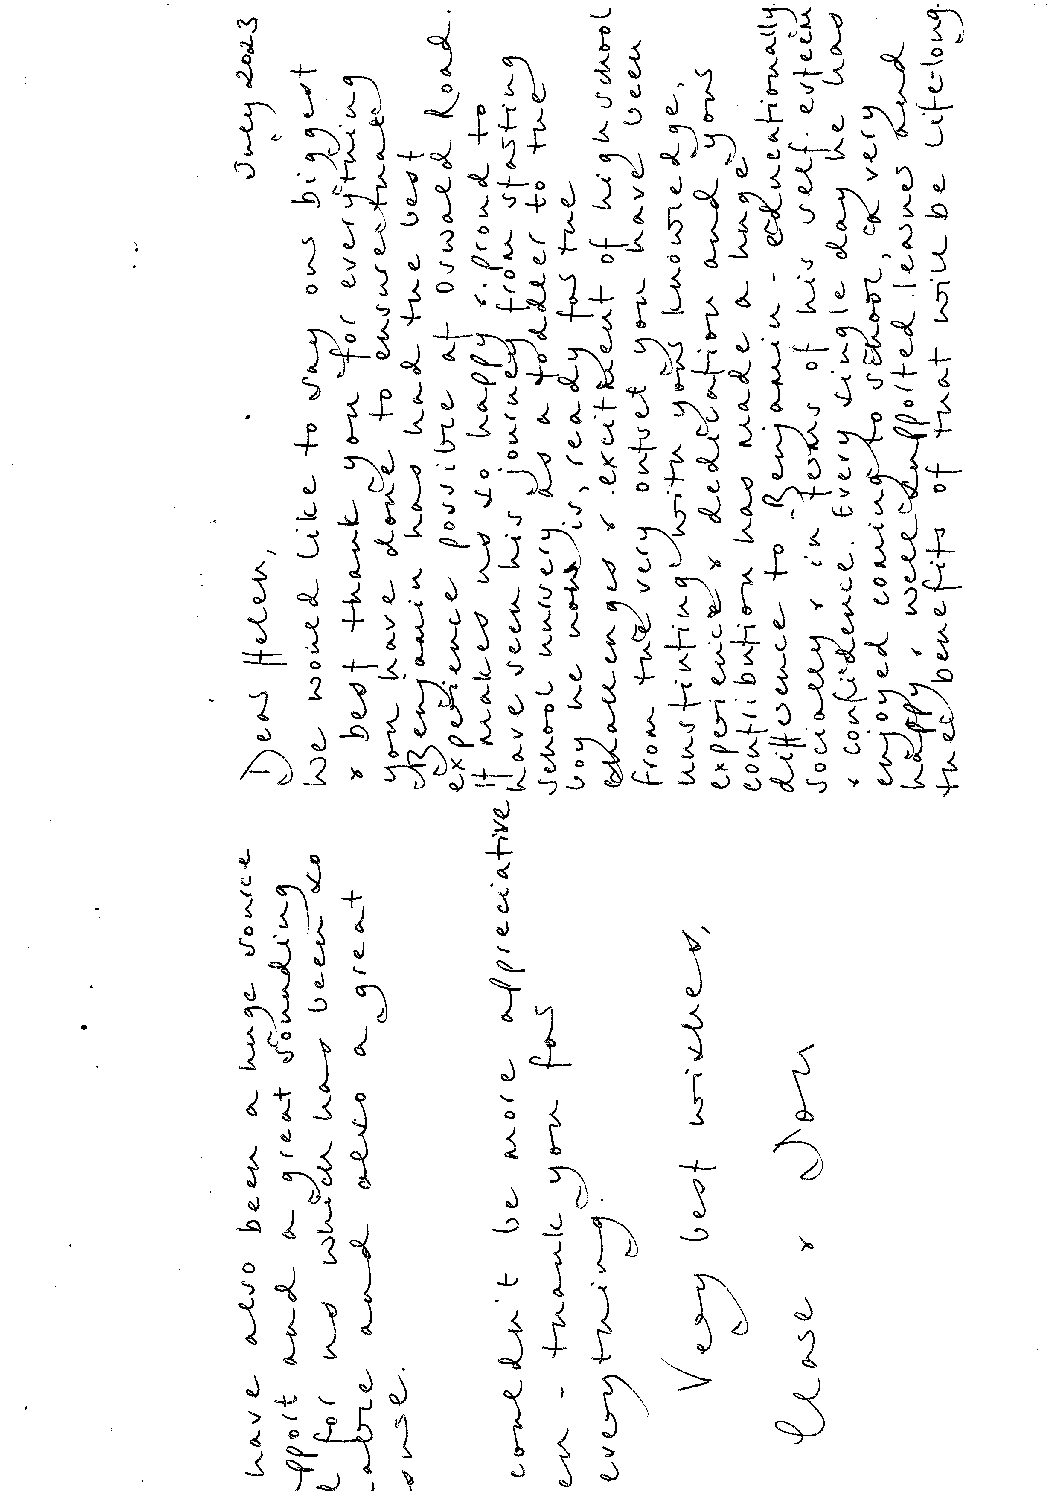 July 2023
Dear Helen,
We would like to say our biggest
& best thank you for everything
you have done to ensure that
Benjamin has had the best
experience possible at Oswald Road.
It makes us so happy & proud to
have seen his journey from starting
school nursery as a toddler to the
boy he now is, ready for the
challenges & excitment of high school
from the very outset you have been
unstinting with your knowledge,
experience & dedication and your
contribution has made a huge
difference to Benjamin - educationally
socially & in terms of his self. esteem
& confidence. Every single day he has
enjoyed coming to school, a very
happy, well supported, learner and
the benefits of that will be lifelong
have also been a huge source
pport and a great sounding
for us which has been so
able and also a great
couldn't be more appreciative
en - thank you for
everything.
Very best wishes,
& Jon